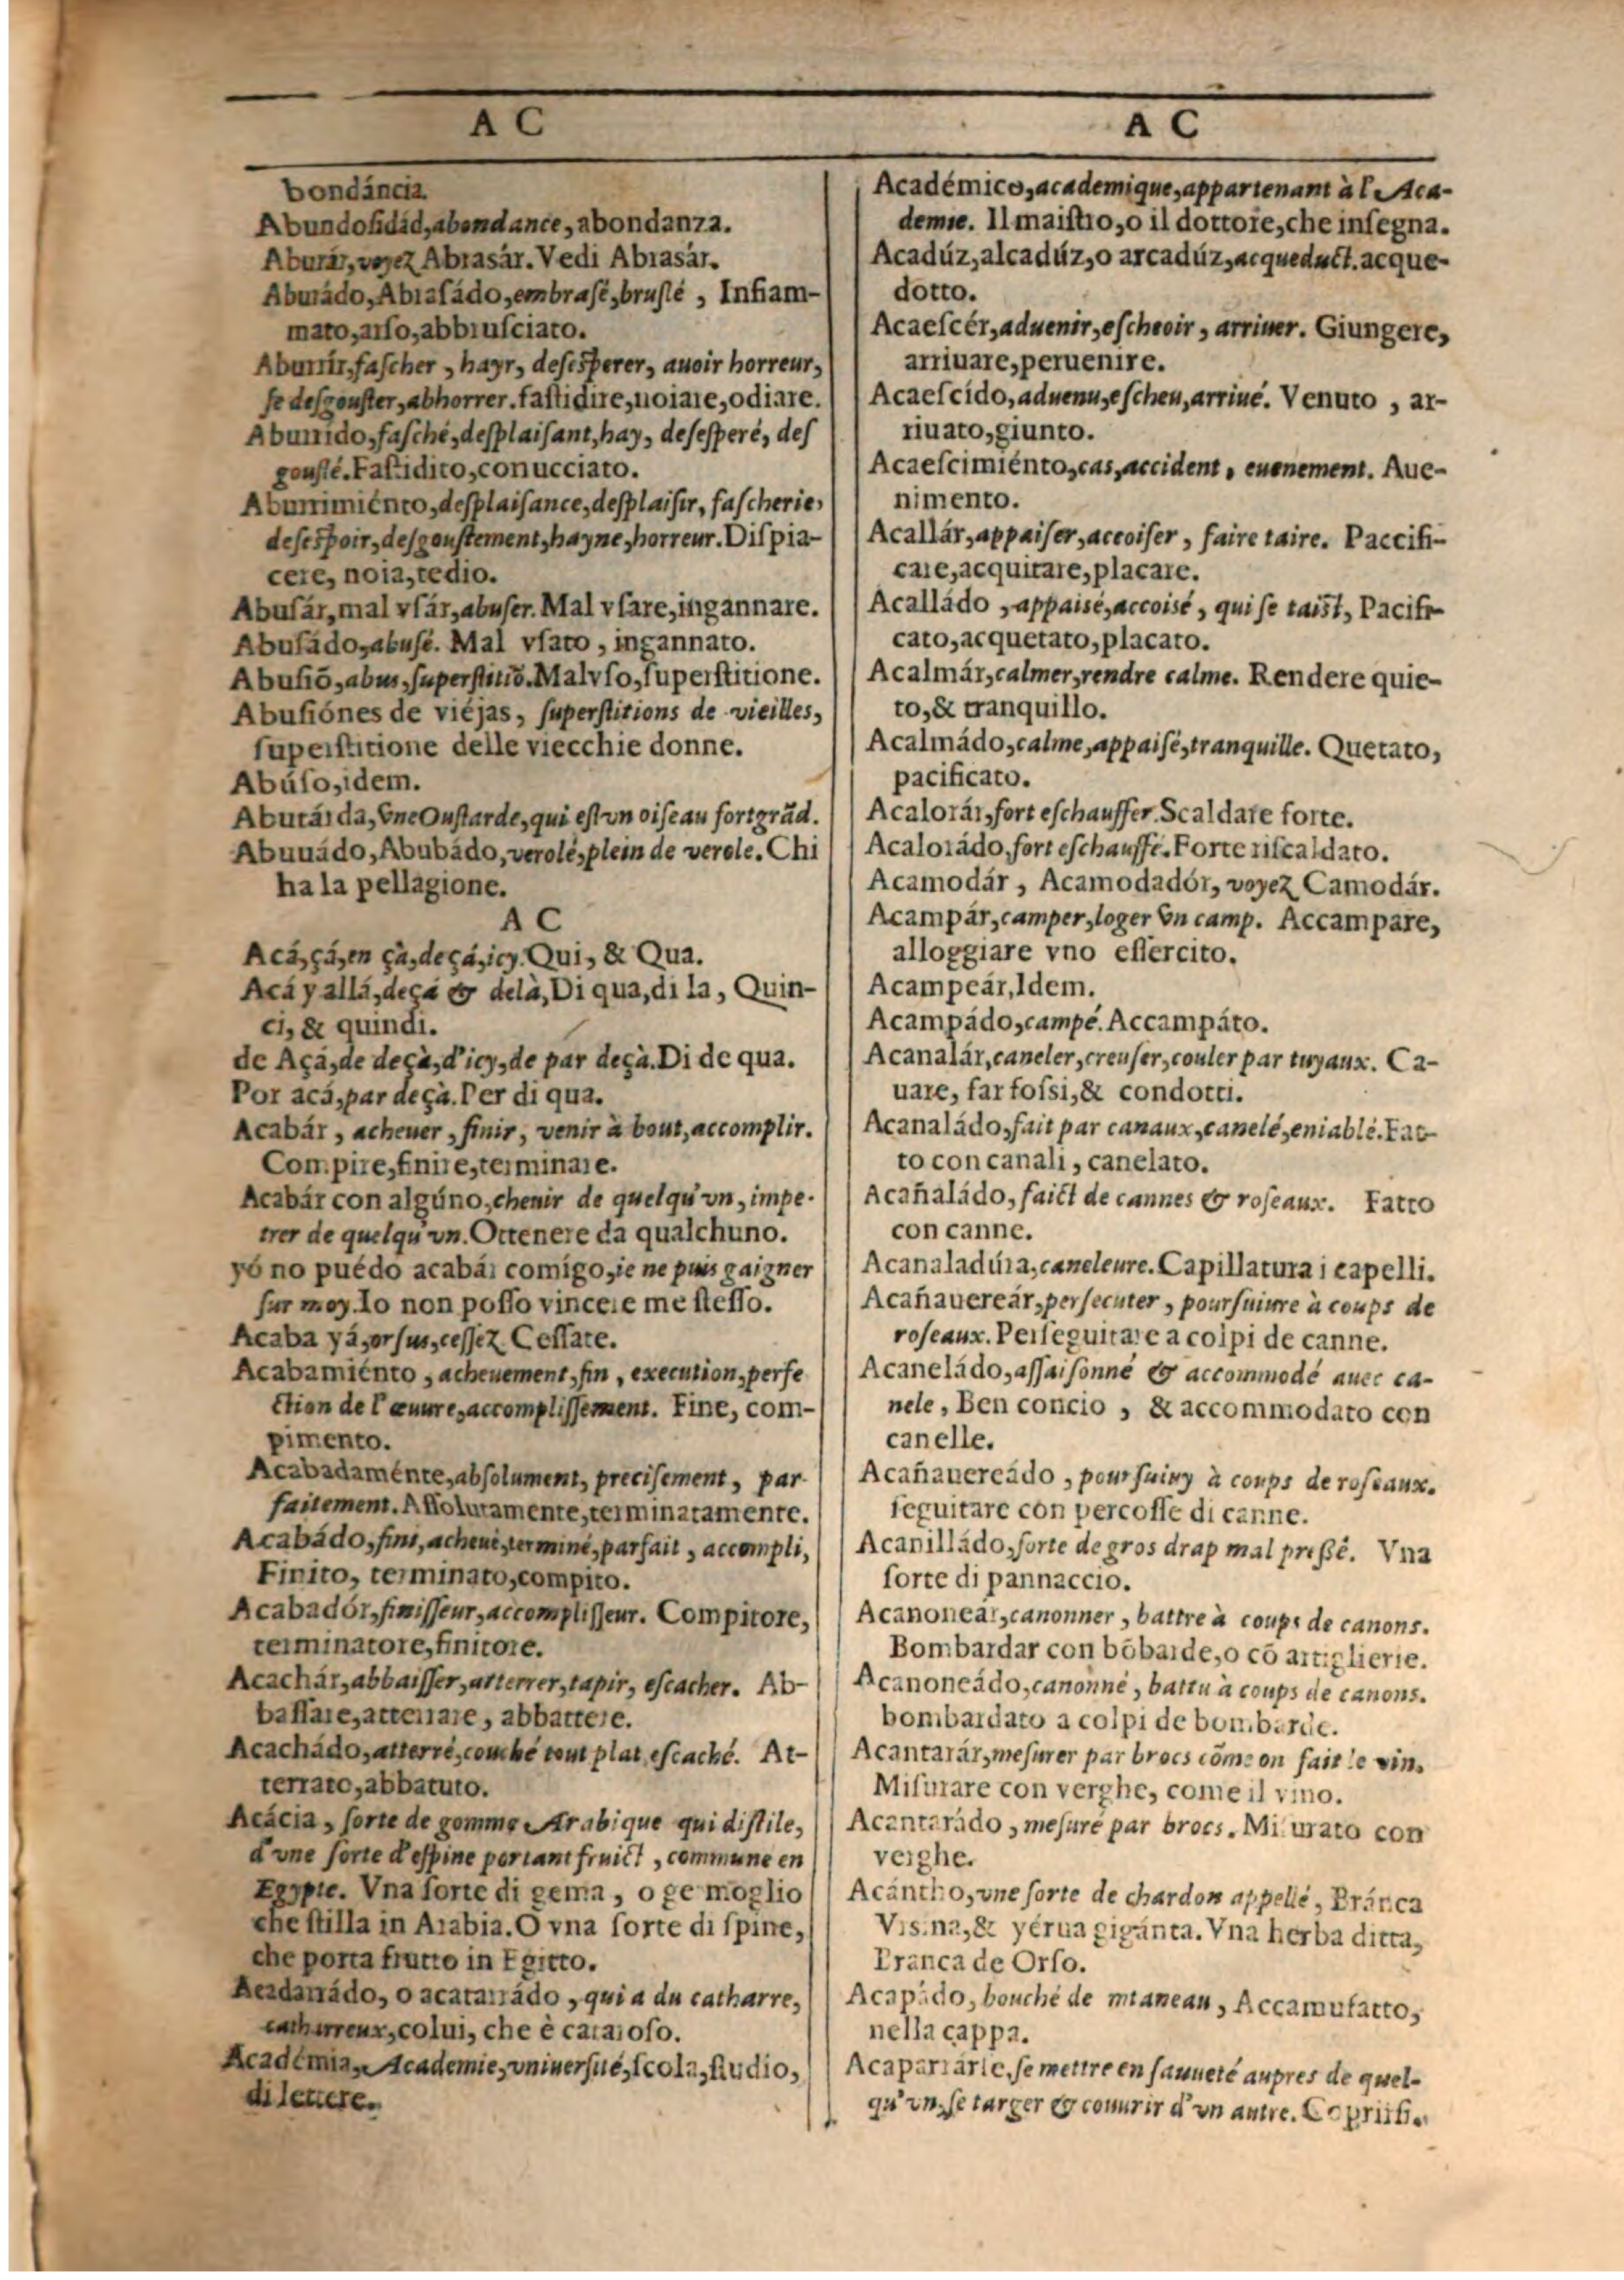 A C
bondáncia.
Abundosidád, abondance, abondanza.
Aburár, voyez Abrasár. Vedi Abrasár.
Aburádo, Abrasádo, embrasé, bruslé, Infiam-
mato, arso, abbrusciato.
Aburrír, fascher, hayr, desesperer, auoir horreur,
se desgouster, abhorrer. fastidire, noiare, odiare.
Aburrido, fasché, desplaisant, hay, desesperé, des
gousté. Fastidito, conucciato.
Aburrimiénto, desplaisance, desplaisir, fascherie,
desespoir, desgoustement, hayne, horreur. Dispia-
cere, noia, tedio.
Abusár, mal vsár, abuser. Mal vsare, ingannare.
Abusádo, abusé. Mal vsato, ingannato.
Abusiō, abus, superstitiō. Mal vso, superstitione.
Abusiónes de viéjas, superstitions de vieilles,
superstitione delle viecchie donne.
Abúso, idem.
Abutárda, vne Oustarde, qui est vn oiseau fort grād.
Abuuádo, Abubádo, verolé, plein de verole. Chi
ha la pellagione.
A C
Acá, çá, en çà, deçá, icy. Qui, & Qua.
Acá y allá, deçá & delà, Di qua, di la, Quin-
ci, & quindi.
de Açá, de deçà, d'icy, de par deçà. Di de qua.
Por acá, par deçà. Per di qua.
Acabár, acheuer, finir, venir à bout, accomplir.
Compire, finire, terminare.
Acabár con algúno, cheuir de quelqu'vn, impe-
trer de quelqu'vn. Ottenere da qualchuno.
yó no puédo acabár comígo, ie ne puis gaigner
sur moy. Io non posso vincere me stesso.
Acaba yá, orsus, cessez Cessate.
Acabamiénto, acheuement, fin, execution, perfe
ction de l'œuure, accomplissement. Fine, com-
pimento.
Acabadaménte, absolument, precisement, par-
faitement. Assolutamente, terminatamente.
Acabádo, fini, acheué, terminé, parfait, accompli,
Finito, terminato, compito.
Acabadór, finisseur, accomplisseur. Compitore,
terminatore, finitore.
Acachár, abbaisser, atterrer, tapir, escacher. Ab-
bassare, atterrare, abbattere.
Acachádo, atterré, couché tout plat, escaché. At-
terrato, abbatuto.
Acácia, sorte de gomme Arabique qui distile,
d'vne sorte d'espine portant fruict, commune en
Egypte. Vna sorte di gema, o ge moglio
che stilla in Arabia. O vna sorte di spine,
che porta frutto in Egitto.
Acadarrádo, o acatarrádo, qui a du catharre,
catharreux, colui, che è cataroso.
Académia, Academie, vniuersité, scola, studio,
di lettere.
A C
Académico, academique, appartenant à l'Aca-
demie. Il maistro, o il dottore, che insegna.
Acadúz, alcadúz, o arcadúz, acqueduct. acque-
dotto.
Acaescér, aduenir, escheoir, arriuer. Giungere,
arriuare, peruenire.
Acaescído, aduenu, escheu, arriué. Venuto, ar-
riuato, giunto.
Acaescimiénto, cas, accident, euenement. Aue-
nimento.
Acallár, appaiser, accoiser, faire taire. Paccifi-
care, acquitare, placare.
Acalládo, appaisé, accoisé, qui se taist, Pacifi-
cato, acquetato, placato.
Acalmár, calmer, rendre calme. Rendere quie-
to, & tranquillo.
Acalmádo, calme, appaisé, tranquille. Quetato,
pacificato.
Acalorár, fort eschauffer. Scaldare forte.
Acalorádo, fort eschauffé. Forte riscaldato.
Acamodár, Acamodadór, voyez Camodár.
Acampár, camper, loger vn camp. Accampare,
alloggiare vno essercito.
Acampeár, Idem.
Acampádo, campé. Accampáto.
Acanalár, caneler, creuser, couler par tuyaux. Ca-
uare, far fossi, & condotti.
Acanaládo, fait par canaux, canelé, eniablé. Fat-
to con canali, canelato.
Acañaládo, faict de cannes & roseaux. Fatto
con canne.
Acanaladúra, caneleure. Capillatura i capelli.
Acañauereár, persecuter, poursuiure à coups de
roseaux. Perseguitare a colpi di canne.
Acaneládo, assaisonné & accommodé auec ca-
nele, Ben concio, & accommodato con
canelle.
Acañauereádo, poursuiuy à coups de roseaux.
seguitare con percosse di canne.
Acanilládo, sorte de gros drap mal pressé. Vna
sorte di pannaccio.
Acanoneár, canonner, battre à coups de canons.
Bombardar con bōbarde, o cō artiglierie.
Acanoneádo, canonné, battu à coups de canons.
bombardato a colpi de bombarde.
Acantarár, mesurer par brocs cōme on fait le vin.
Misurare con verghe, come il vino.
Acantarádo, mesuré par brocs. Misurato con
verghe.
Acántho, vne sorte de chardon appellé, Bránca
Vrsina, & yérua gigánta. Vna herba ditta,
Branca de Orso.
Acapádo, bouché de mtaneau, Accamufatto,
nella cappa.
Acaparrárse, se mettre en sauueté aupres de quel-
qu'vn, se targer & couurir d'vn autre. Coprirsi.